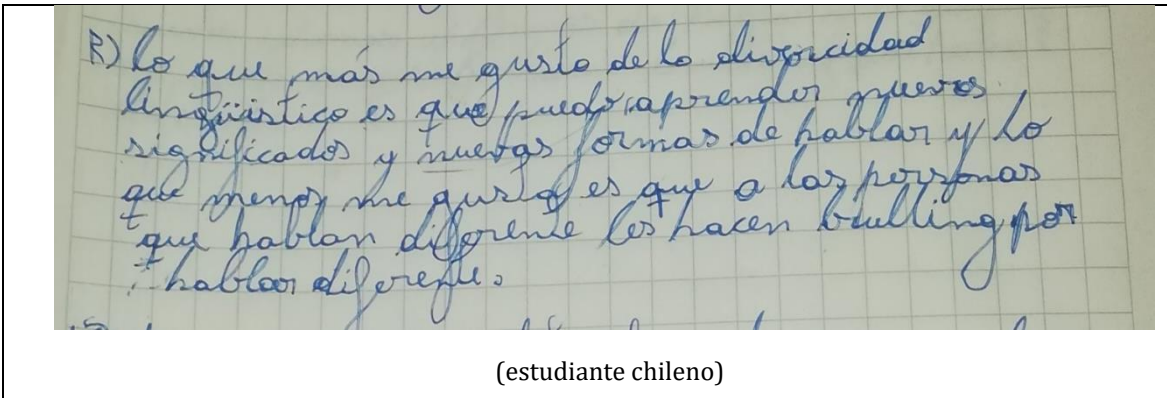 R) Lo que más me gusta de la divercidad
lingüística es que puedo aprender nuevos
significados y nuevas formas de hablar y lo
que menos me gusta es que a las personas
que hablan diferente les hacen bulling por
hablar diferente.
(estudiante chileno)